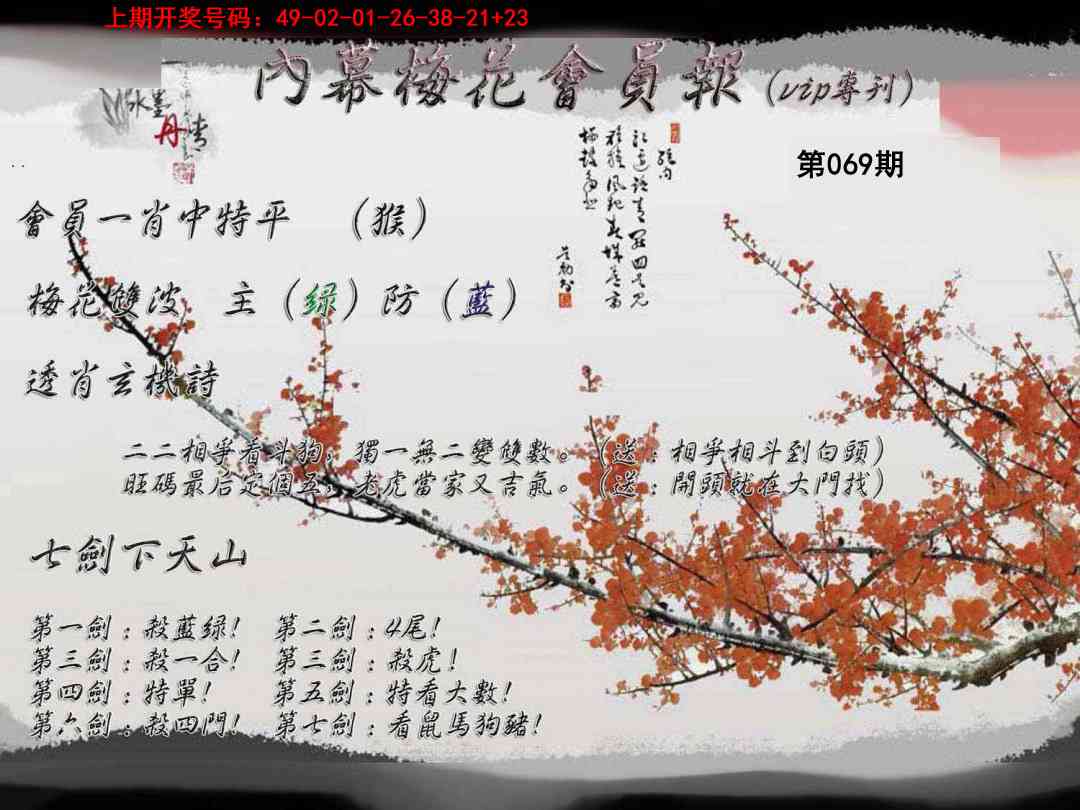 上期开奖号码：49-02-01-26-38-21+23
內幕梅花會員報（vip專刊）
水墨
丹青
第069期
會員一肖中特平 （猴）
梅花雙波 主（绿）防（藍）
透肖玄機詩
二二相爭看斗狗，獨一無二變雙數。（送：相爭相斗到白頭）
旺碼最后定個五，老虎當家又吉氣。（送：開頭就在大門找）
七劍下天山
第一劍：殺藍绿！ 第二劍：4尾！
第三劍：殺一合！ 第三劍：殺虎！
第四劍：特單！ 第五劍：特看大數！
第六劍：殺四門！ 第七劍：看鼠馬狗豬！